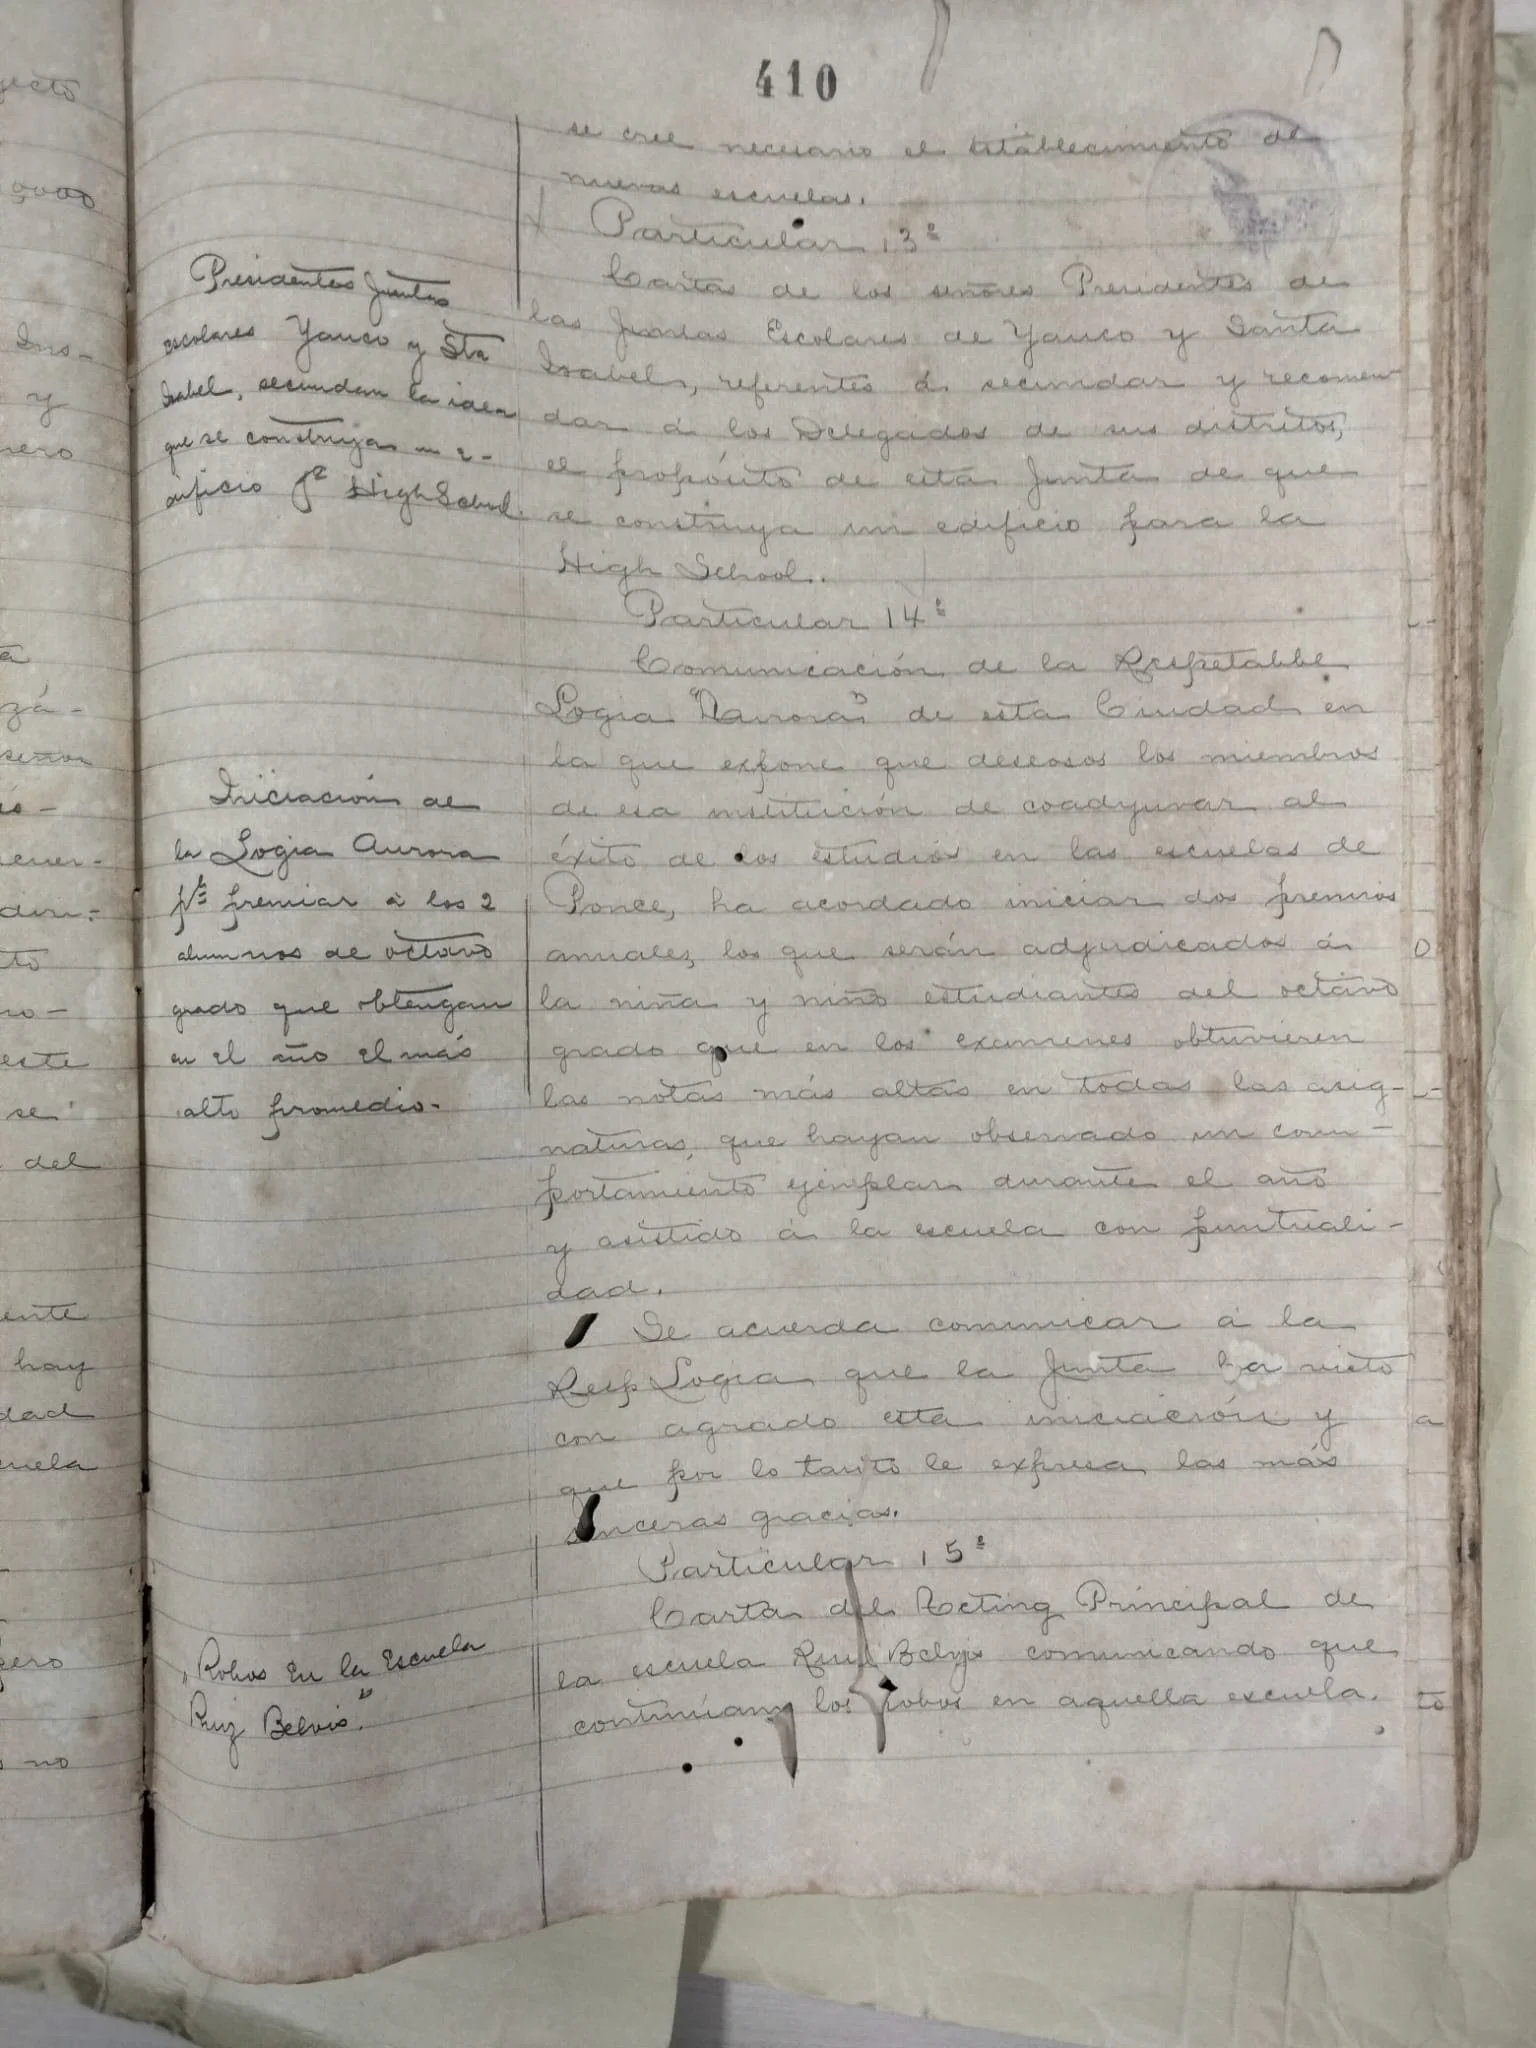 410
se cree necesario el establecimiento de
nuevas escuelas.
Particular 13º
Cartas de los señores Presidentes de
las Juntas Escolares de Yauco y Santa
Isabel, referentes á secundar y recomen-
dar á los Delegados de sus distritos,
el propósito de esta Junta de que
se construya un edificio para la
High School.
Presidentes Juntas
escolares Yauco y Sta
Isabel, secundan la idea
que se construya un e-
dificio pª High School.
Particular 14º
Comunicación de la Respetable
Logia "Aurora" de esta Ciudad en
la que expone que deseosos los miembros
de esa institución de coadyuvar al
éxito de los estudios en las escuelas de
Ponce, ha acordado iniciar dos premios
anuales, los que serán adjudicados á
la niña y niño estudiantes del octavo
grado que en los examenes obtuvieren
las notas más altas en todas las asig-
naturas, que hayan observado un com-
portamiento ejemplar durante el año
y asistido á la escuela con puntuali-
dad.
Iniciación de
la Logia Aurora
pª premiar á los 2
alumnos de octavo
grado que obtengan
en el año el más
alto promedio.
Se acuerda comunicar á la
Resp Logia que la Junta ha visto
con agrado esta iniciación y
que por lo tanto le expresa las más
sinceras gracias.
Particular 15º
Carta del Acting Principal de
la escuela Ruiz Belvis comunicando que
continúan los robos en aquella escuela.
"Robos en la Escuela
Ruiz Belvis."
yecto
Ins-
y
nero
zá-
señor
cuer-
diri-
to
no-
este
se
del
ente
hay
dad
cuela
pero
no